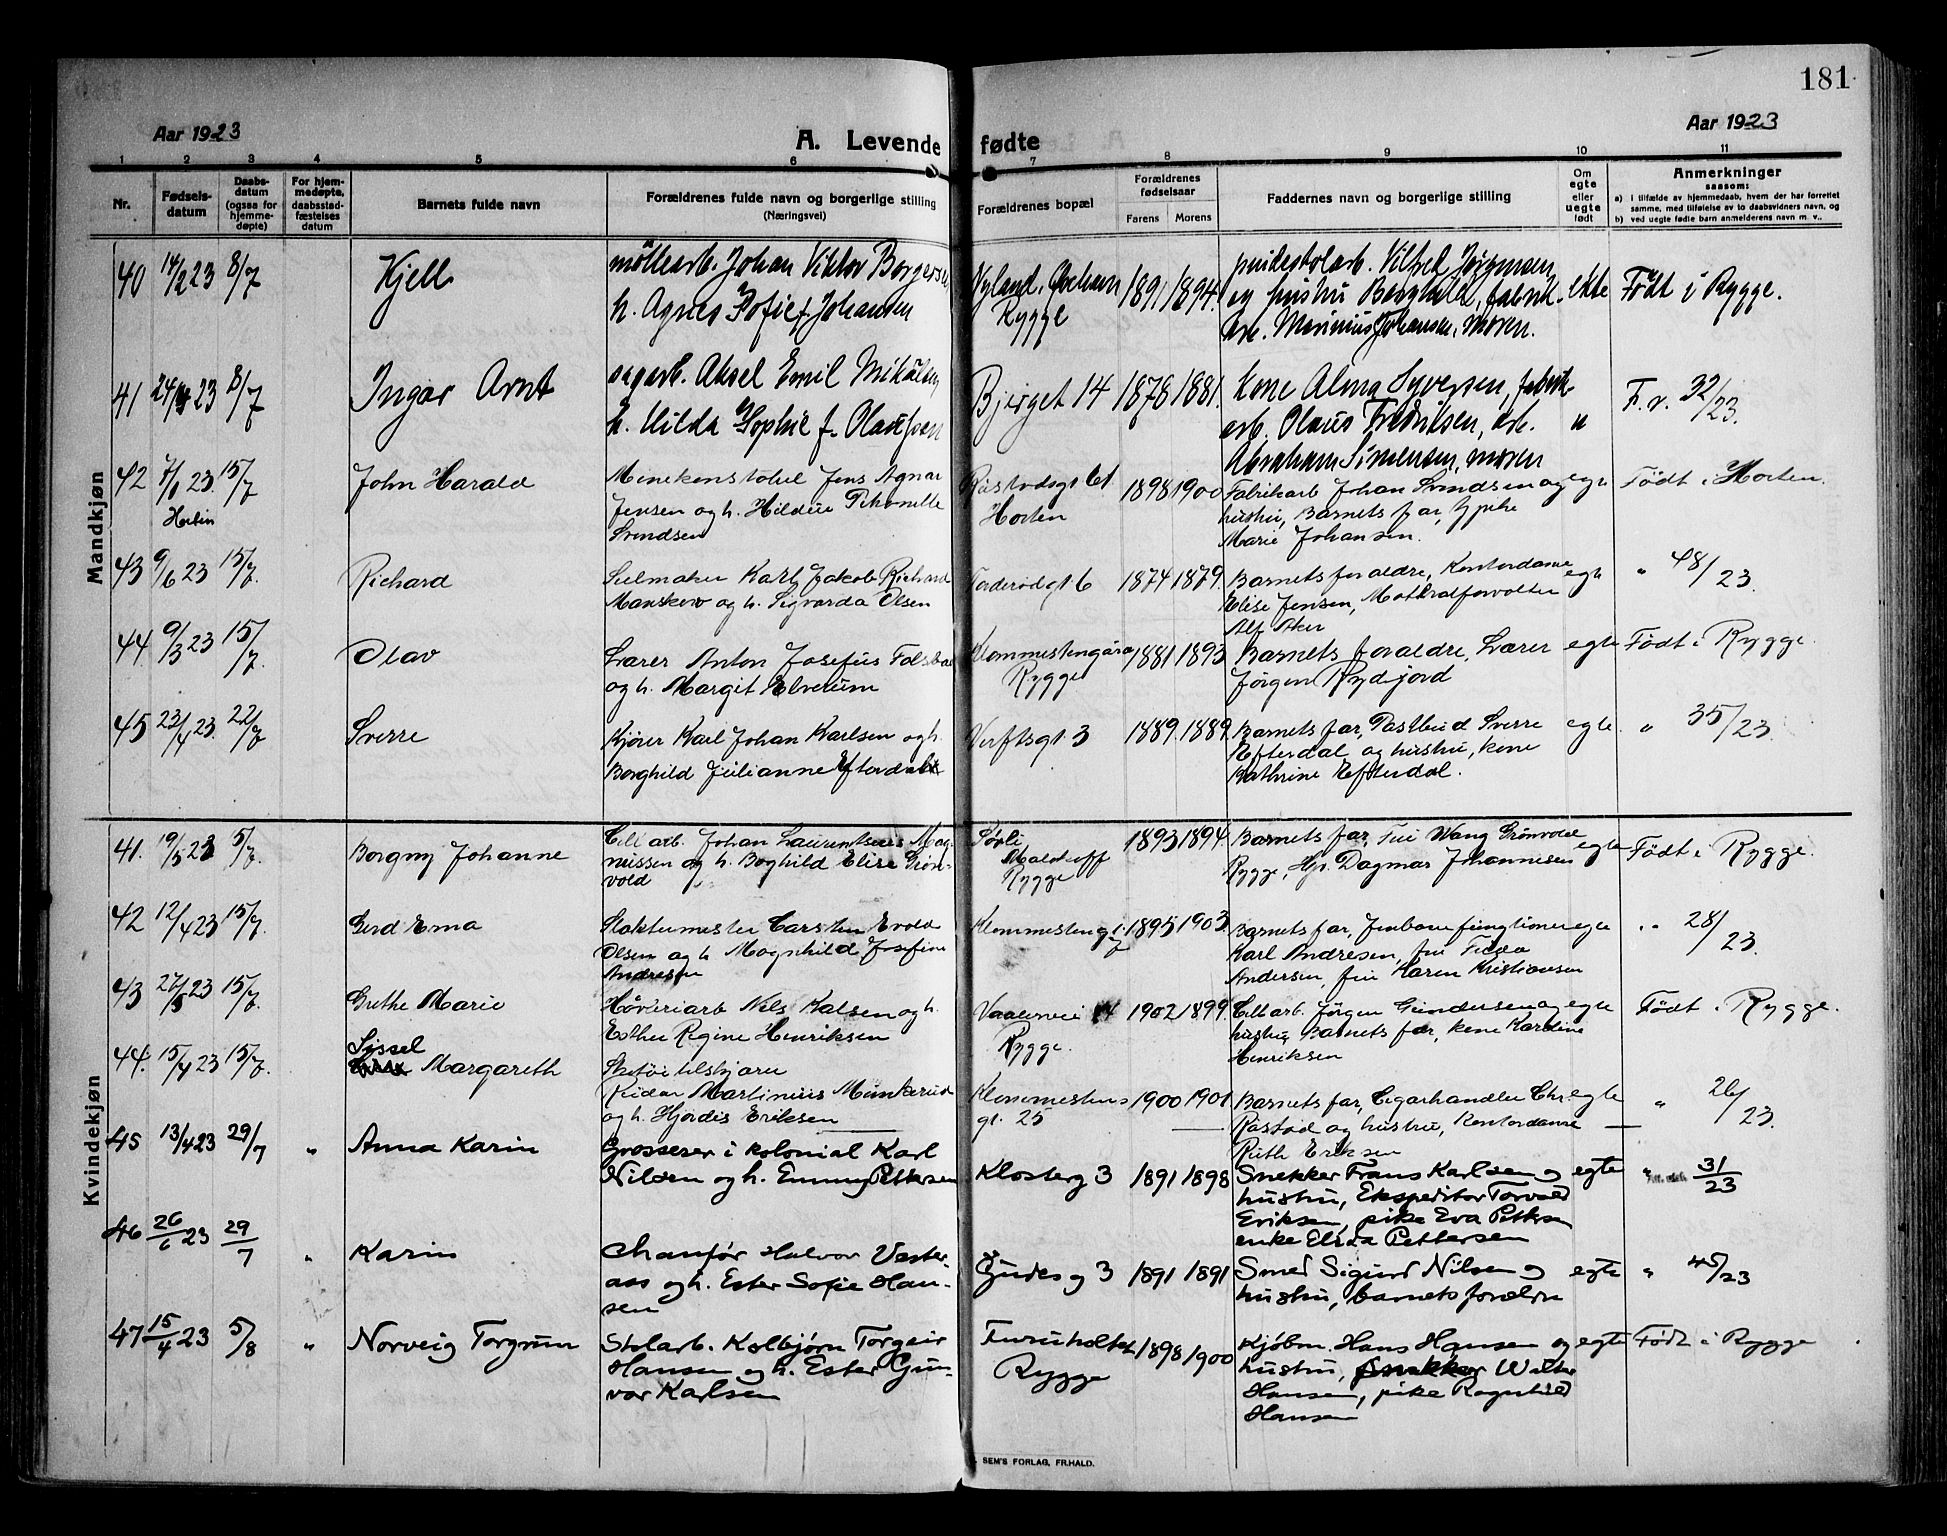 181
Aar 1923
A. Levende fødte
Aar 1923
1 2 3 4 5 6 7 8 9 10 11
Nr.
Fødsels-
datum
Daabs-
datum
(ogsaa for
hjemme-
døpte)
For hjem-
medøpte,
daabsstad-
fæstelses
datum
Barnets fulde navn
Forældrenes fulde navn og borgerlige stilling
(Næringsvei)
Forældrenes bopæl
Forældrenes
fødselsaar
Farens Morens
Faddernes navn og borgerlige stilling
Om
egte
eller
uegte
født
Anmerkninger
saasom:
a) i tilfælde av hjemmedaab, hvem der har forrettet
samme, med tilføielse av to daabsvidners navn, og
b) ved uegte fødte barn anmelderens navn m. v.
Mandkjøn
40 14/2 23 8/7 Kjell
møllearb. Johan Viktor Borgersen
h. Agnes Sofie f. Johansen
Nyland,
Rygge
1891 1894.
Vilfred Jørgensen
og hustru Borghild, fabrik-
arb. Marinius Johansen, moren.
ekte
Født i Rygge.
41 24/ 23 8/7 Ingar Arnt
sagarb. Aksel Emil Mikalsen
h. Hilda Sophie f. Olaussen
Bjerget 14
1878 1881.
Kone Alma Syversen, fabrik-
arb. Olaus Fredriksen, arb.
Abraham Simensen, moren
"
F. r. 32/23.
42 7/1 23. 15/7 John Harald
Horten
Jens Agnar
Jensen og h. Hildur
Svendsen
61
Horten
1898 1900
Fabrikarb Johan Svendsen og
hustru, Barnets far, pike
Marie Johansen.
egte
Født i Horten.
43 9/6 23 15/7. Richard
Seilmaker Karl Jakob Richard
og h. Sigvarda Olsen
6
1874 1879.
Barnets foraldre, Kontordame
Elise Jensen,
Alf Aker
egte
" 48/23.
44 9/3 23 15/7. Olav
Lærer Anton Josefus
og h. Margit Elverum
Rygge
1881 1893
Barnets foraldre, Lærer
Jørgen Rydjord
egte
Født i Rygge.
45 23/4 23. 22/7 Sverre
Kjører Karl Johan Karlsen og h.
Borghild Julianne Efterdal
Verftsgt. 3
1889. 1889.
Barnets far, Postbud Sverre
Efterdal og hustru, kone
Kathrine Efterdal.
egte.
" 35/23.
Kvindekjøn
41. 19/5 23 5/7. Borgny Johanne
Cell arb. Johan Laurentsius Mag-
nussen og h. Borghild Elise Grøn-
vold
Rygge
1893 1894.
Barnets far, Fru Wang Grønvold
Rygge, Hr. Dagmar Johannesen
egte
Født i Rygge.
42 12/4 23 15/7. Gerd Erna
Slaktermester Carsten Evald
Olsen og h Magnhilde Josefine
Andresen
Klommestengt. 7
1895 1903.
Barnets far,
Karl Andresen, fru Frida
Andersen, fru Karen Kristiansen
egte
" 28/23.
43 27/5 23 15/7. Grethe Marie
Høveriarb Nels Kalsen og h.
Esther Regine Henriksen
Vaalervei 14
Rygge.
1902 1899
Cell arb. Jørgen Gundersen og
hustru Barnets far, kone Karoline
Henriksen
egte
Født i Rygge.
44. 15/4 23 15/7. Sissel
Margareth
Reidar Martinius Munkerud
og h. Hjørdis Eriksen
Klommestens
gt. 25
1900 1901
Barnets far, Cigarhandler Chr.
Rastad og hustru, Kontordame
Ruth Eriksen
egte
" 26/23.
45 13/4 23 29/7 " Anna Karin
Grosserer i kolonial Karl
Nilsen og h. Emmy Pettersen
Klosterg 3
1891 1898
Snekker Frans Karlsen og
hustru, Ekspeditør Torvald
Eriksen, pike Eva Pettersen
enke Elida Pettersen
egte
" 31/23
46 26/6 23 29/7 " Karin
Chauffør Halvor Vester-
aas og h. Ester Sofie Han-
sen
Gudes g 3
1891 1891
Smed Sigurd Nilsen og
hustru, barnets foreldre
egte
" 45/23
47 15/4 23 5/8 " Norveig Torgrun
Stolarb. Kolbjørn Torgeir
Hansen og h. Ester Gun-
vor Karlsen
Furuholtet
Rygge
1898 1900
Kjøbm. Hans Hansen og
hustru, snekker Walter
Hansen, pike Ragnhild
Hansen
egte
Født i Rygge
SEM'S FORLAG, FR.HALD.